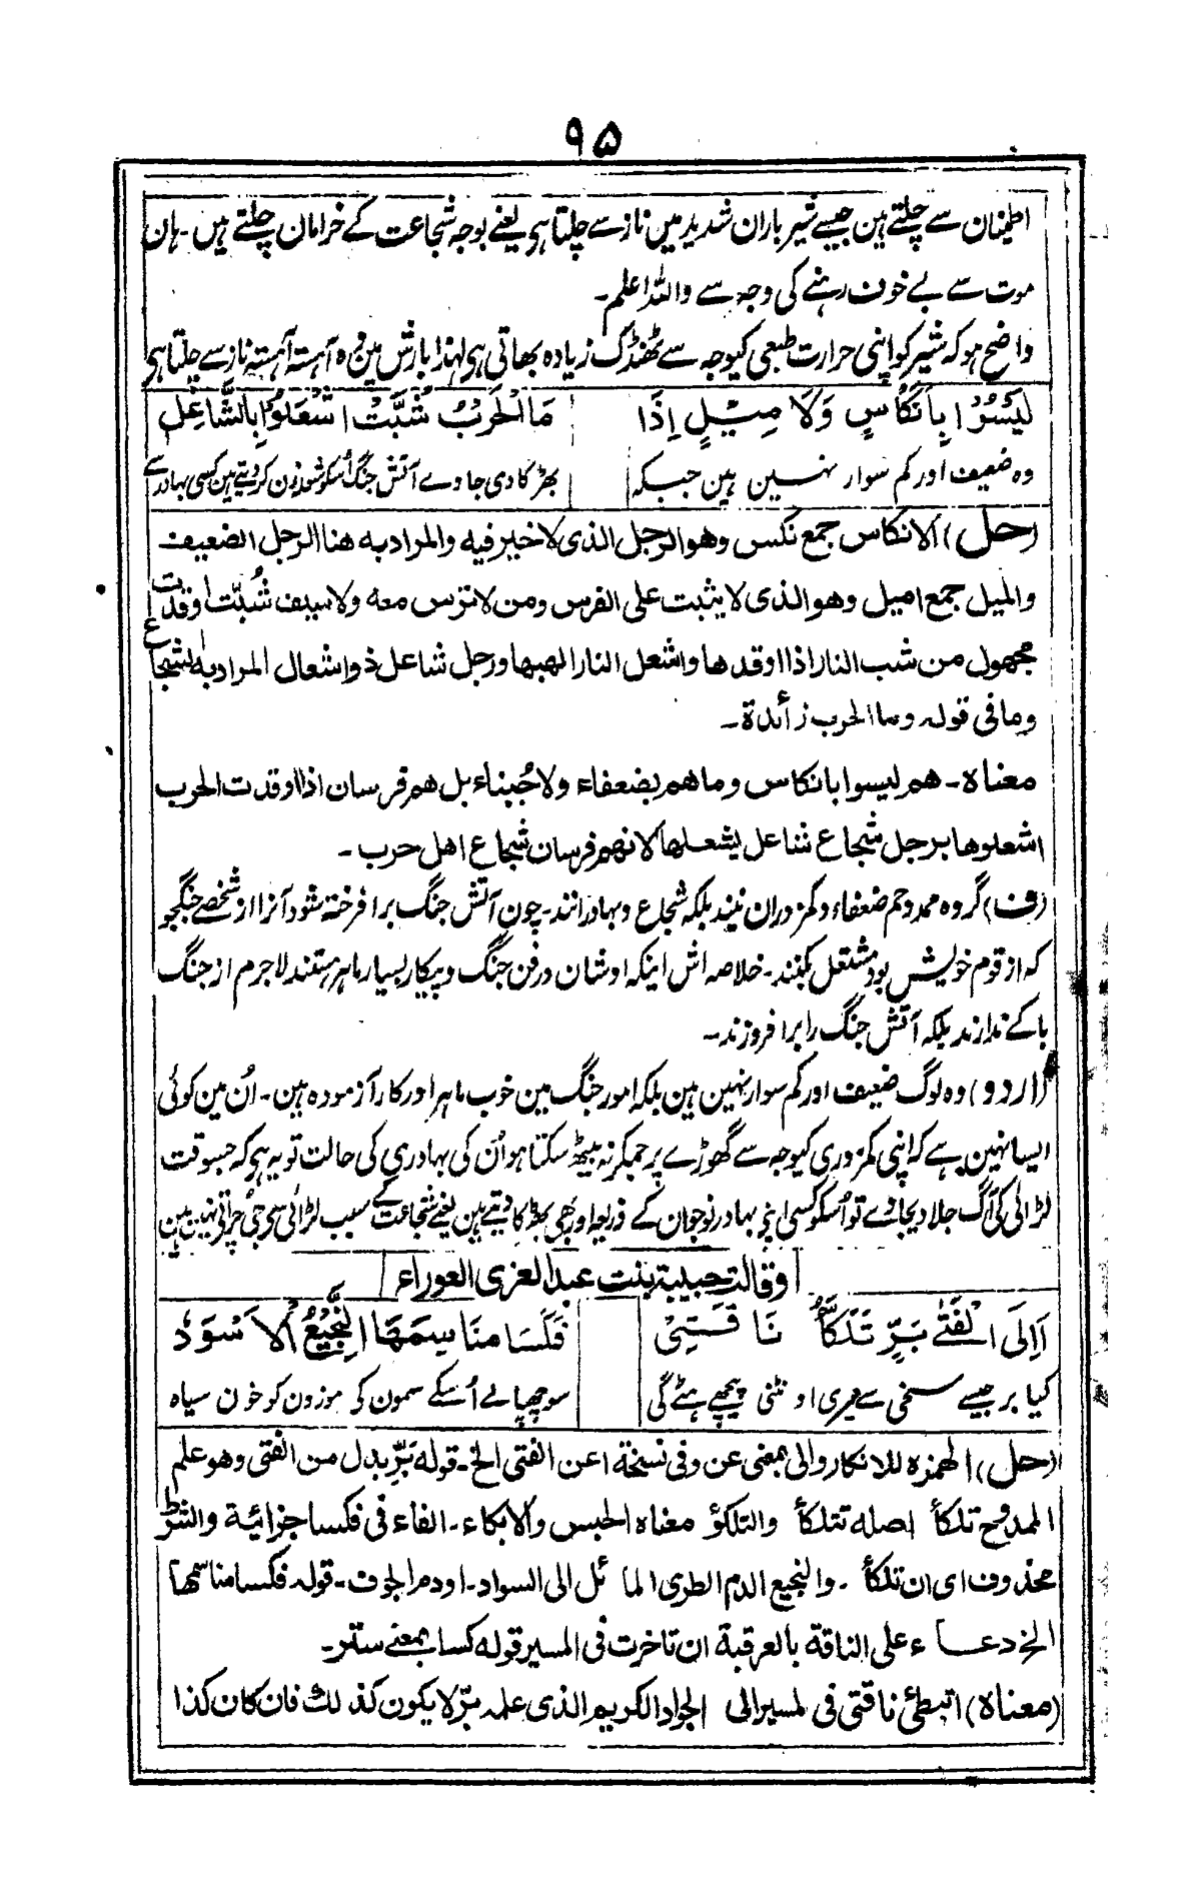 ۹۵
اطمنان سے چلتے ہین جیسے شیر باران شدید مین ناز سے چلتا ہی یعنے بوجہ شجاعت کے خرامان چلتے ہیں۔ہان
موت سے بے خوف رہنے کی وجہ سے واللہ اعلم۔
واضح ہو کہ شیر کو اپنی حرارت طبعی کیوجہ سے ٹھنڈک زیادہ بھاتی ہو لہذا بارش مین وہ آہستہ آہستہ ناز سے چلتا ہی
لَيْسُوْا بِأَنْكَاسٍ وَلَا مِيْلٍ اِذَا مَا الْحَرْبُ شُبَّتْ اَشْعَلُوْا بِالشَّاعِلِ
وہ ضعیف اور کم سوار نہین ہین جبکہ بھڑکا دی جاوے آتش جنگ اُسکو شعلہ زن کردیتے ہین کسی بہادر سے
(حل) الانکاس جمع نکس وھو الرجل الذی لا خیر فیہ والمراد بہ ھنا الرجل الضعیف
والمیل جمع امیل وھو الذی لا یثبت علی الفرس ومن لا ترس معہ ولا سیف شُبّت اوقدت
مجھول من شب النار اذا اوقدھا واشعل النار الھبھا ورجل شاعل ذو اشعال المراد بہ الشجاع
وما فی قولہ وما الحرب زائدۃ۔
معناہ۔ھم لیسوا بانکاس وما ھم بضعفاء ولا جُبناء بل ھم فرسان اذا اوقدت الحرب
اشعلوھا برجل شجاع شاعل یشعلھا لانھم فرسان شجاع اھل حرب۔
(ف) گروہ ممدوحم ضعفاء وکمزوران نیند بلکہ شجاع و بہادرانند۔چون آتش جنگ برافرختہ شود آنرا از شخصے جنگجو
کہ از قوم خویش بود مشتعل بکنند۔خلاصہ اش اینکہ اوشان درفن جنگ و پیکار بسیار ماہر ہستند لاجرم از جنگ
باکے ندارند بلکہ آتش جنگ را برافروزند۔
(اردو) وہ لوگ ضعیف اور کم سوار نہین ہین بلکہ امور جنگ مین خوب ماہر اور کار آزمودہ ہین۔ اُن مین کوئی
ایسا نہین ہے کہ اپنی کمزوری کیوجہ سے گھوڑے پر جمکر نہ بیٹھ سکتا ہو اُن کی بہادری کی حالت تو یہ ہی کہ جسوقت
لڑائی کی آگ جلا دیجاوے تو اُسکو کسی اپنے بہادر نوجوان کے ذریعہ اور بھی بھڑکا دیتے ہین یعنے شجاعت کے سبب لڑائی سے جی چراتے نہین ہین
وقالت حبیبۃ بنت عبد العزی العوراء
اَاِلَی الْفَتٰی بَرٍّ تَلَكَّأُ نَاقَتِیْ فَكَسَا مَنَاسِمَهَا النَّجِیْعُ الْاَسْوَدُ
کیا بر جیسے سخی سے میری اونٹنی پیچھے ہٹے گی سو چھپالے اُسکے سمون کی موزون کو خون سیاہ
(حل) الھمزہ للانکار والی بمعنی عن وفی نسخۃ اعن الفتی الخ۔قولہ بَرّ بدل من الفتی وھو علم
الممدوح تلکأ اصلہ تتلکأ والتلکؤ معناہ الحبس والابکاء۔الفاء فی فکسا جزائیۃ والشرط
محذوف ای ان تلکأ ۔ والنجیع الدم الطری المائل الی السواد۔او دم الجوف۔قولہ فکسا مناسمھا
الخ دعاء علی الناقۃ بالعرقبۃ ان تاخرت فی المسیر قولہ کسا بمعنے ستر۔
(معناہ) اتبطئ ناقتی فی لمسیر الی الجواد الکریم الذی علمہ برّ لا یکون کذلک فان کان کذا